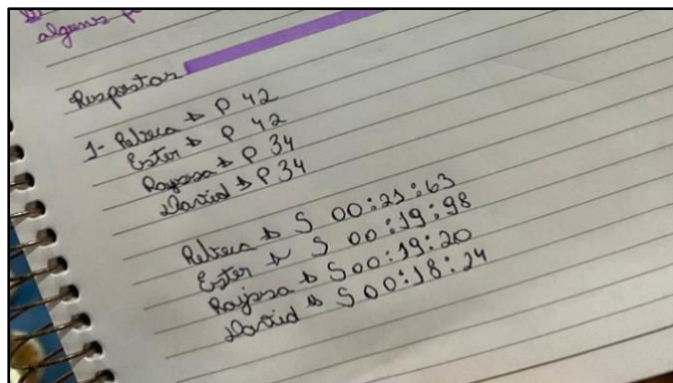 alguns
Respostas
1- Rebeca → P 42
Ester → P 42
Rayssa → P 34
David → P 34
Rebeca → S 00:21:63
Ester → S 00:19:98
Rayssa → S 00:19:20
David → S 00:18:24